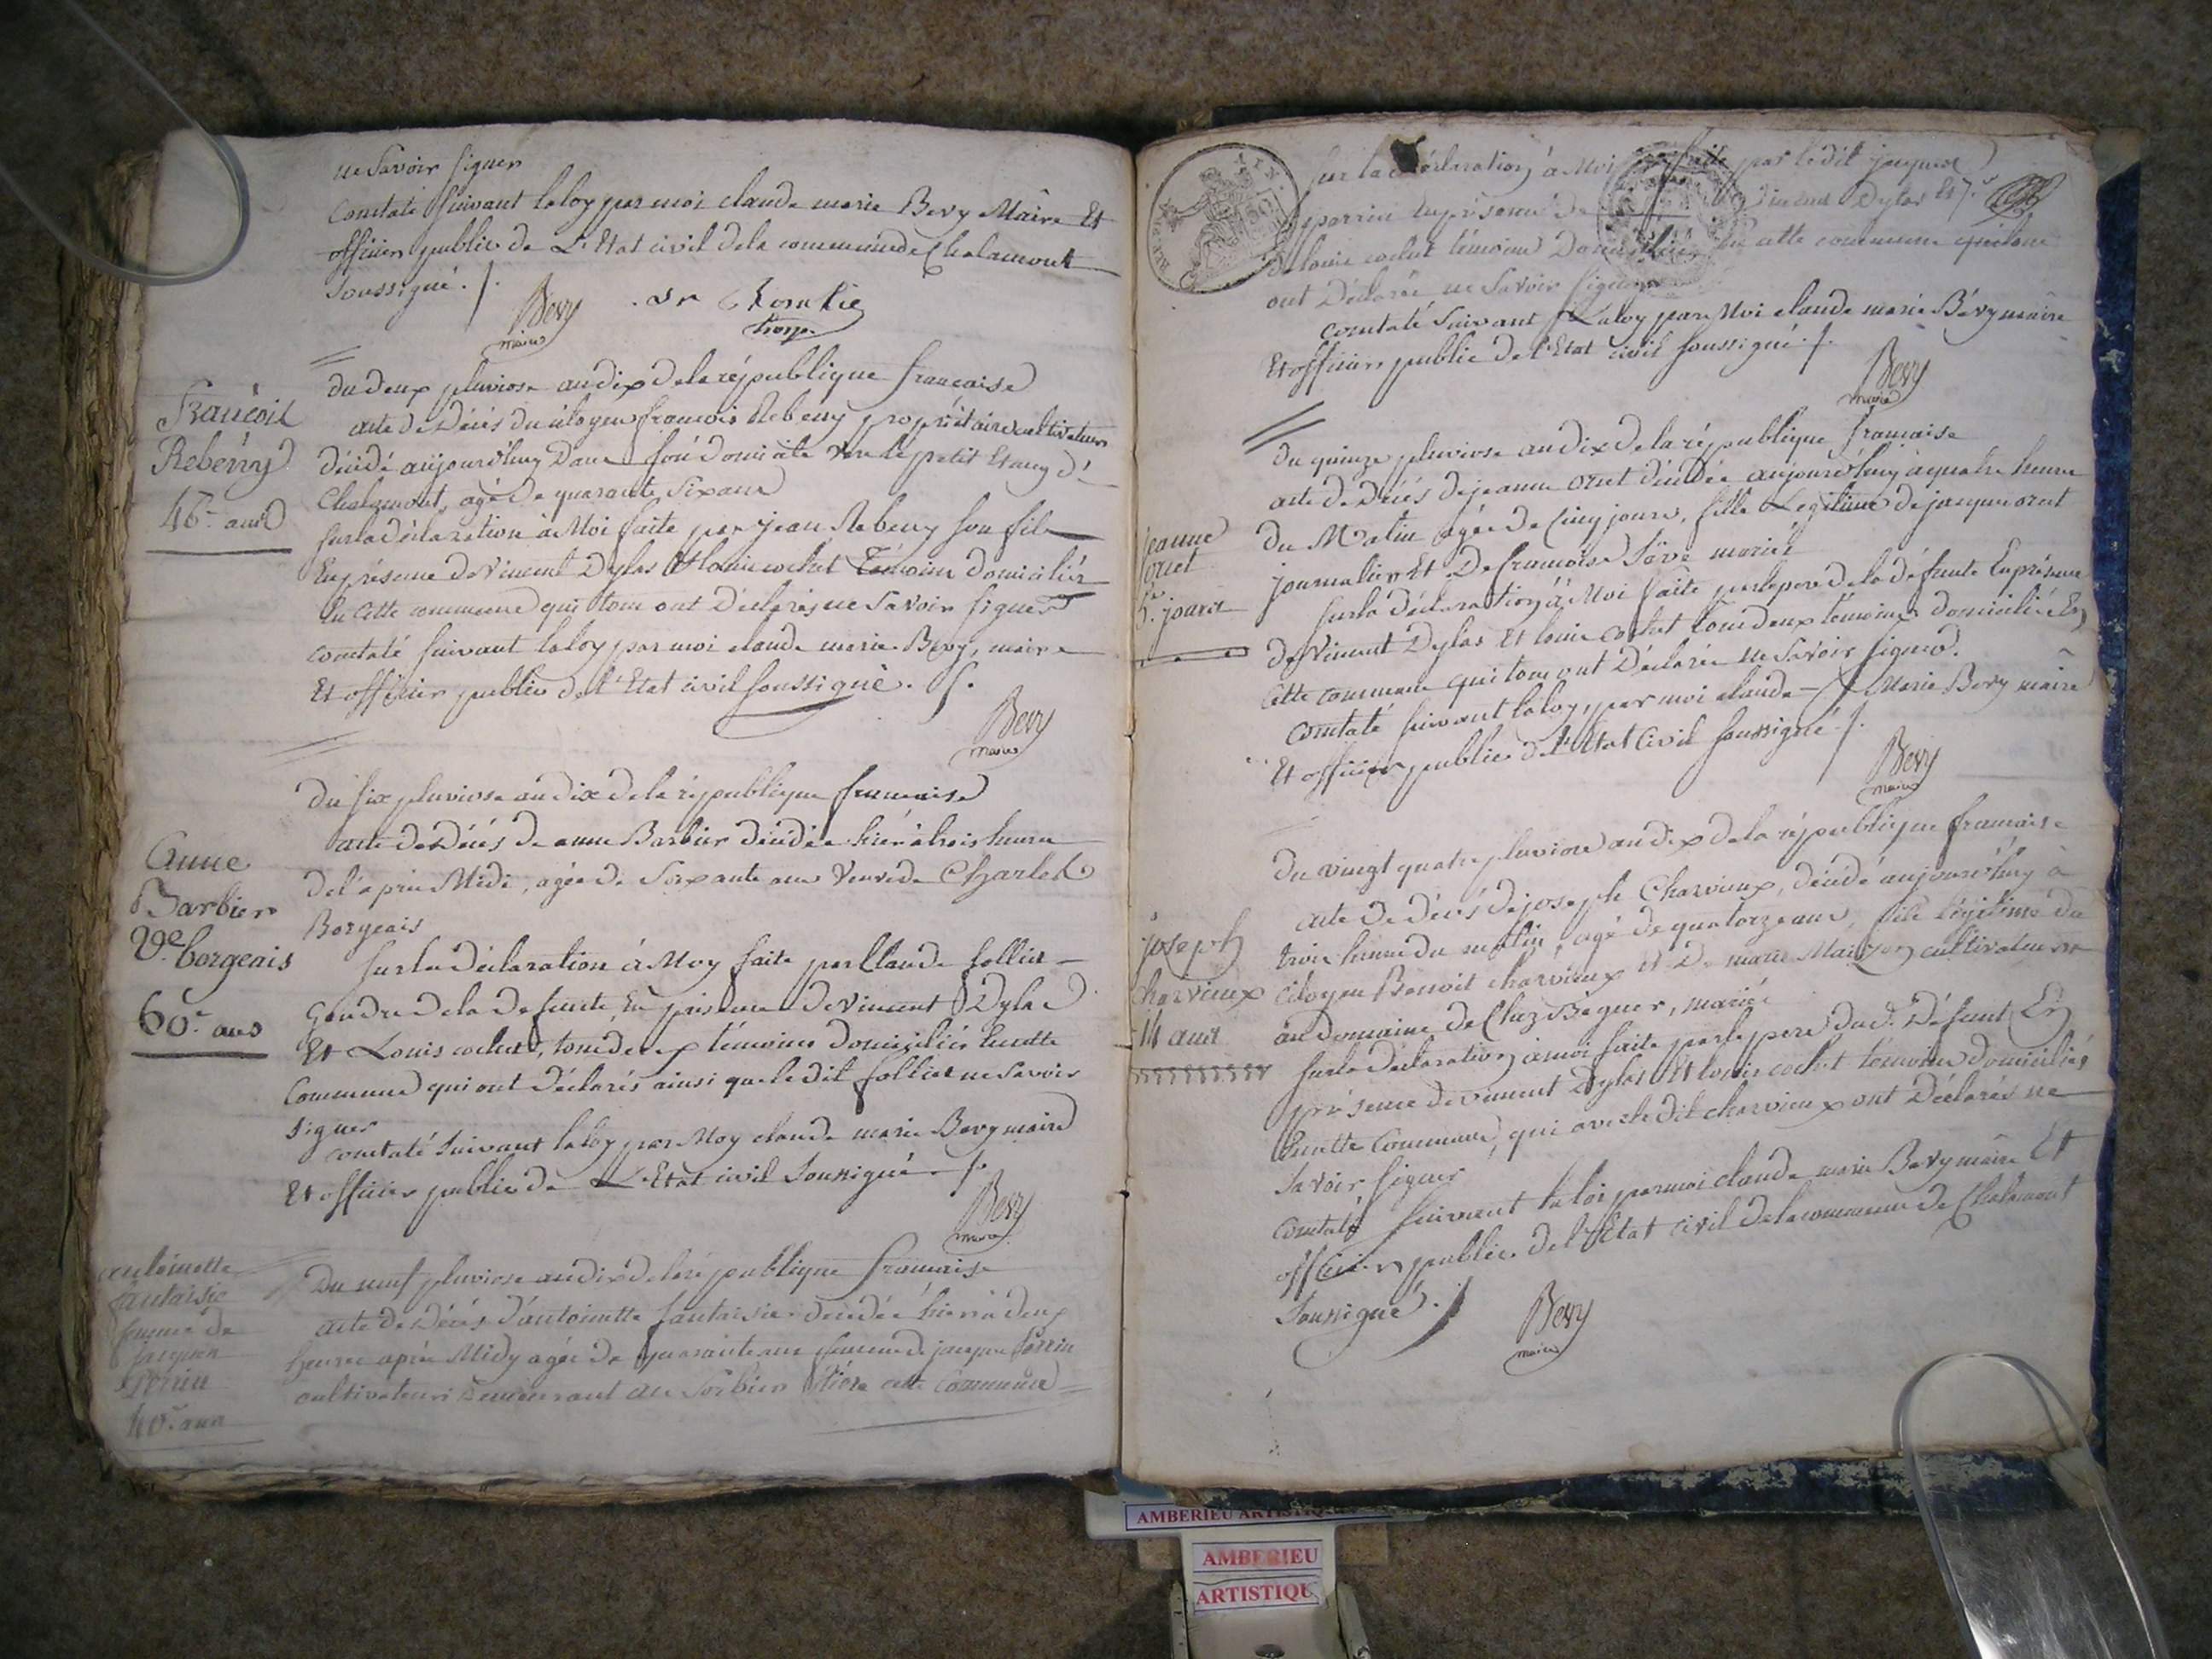 ne Savoir signer
Constaté suivant la loy par moi claude marie Bevy Maire Et
officier public de L'Etat civil de la commune de Chalamont
soussigné ./.
Bevy
maire
du deux pluviose an dix de la république française
François
Rebeny
46.e ans
acte de Décès du citoyen françois Rebeny propriétaire cultivateur
décédé aujourd'huy Dans son domicile vers le petit Etang de
Chalamont, agé de quarante six ans
sur la déclaration à Moi faite par jean Rebeny son fils
En présence de Vincent Dylas et louis cochet Témoins domiciliés
En Cette commune qui tous ont Déclarés ne Savoir signer
constaté suivant la loy par moi claude marie Bevy, maire
Et officier public de l'Etat civil soussigné. /.
Bevy
maire
du six pluviose an dix de la république francaise
Anne
Barbier
Ve. borgeais
60.e ans
acte de Décès de anne Barbier décédée hier à trois heures
de l'après Midi, agée de Soixante ans Veuve de Charles
Borgeais
sur la déclaration à Moy faite par Claude follict
Gendre de la defunte, En présence de Vincent Dylas
Et Louis cochet, tous deux témoins domiciliés En cette
Commune qui ont déclarés ainsi que le dit follict ne Savoir
signer
constaté suivant la loy par Moy claude marie Bevy maire
Et officier public de L'Etat civil Soussigné ./.
Bevy
maire
antoinette
fantaisie
femme de
jacques
perrin
40.e ans
Du neuf pluviose an dix de la république francaise
acte de Décès d'antoinette fantaisie decedée hier à deux
heures après Midy agée de quarante ans femme de jacques perrin
cultivateur demeurant au Sorbier Riere cette Commune
sur la déclaration à Moi faite par ledit jacques
perrin En présence de Vincent Dylas Et
de louis cochet témoins Domiciliés En cette commune qui tous
ont Déclarés ne Savoir signer
constaté Suivant La loy par Moi claude marie Bévy maire
Et officier public de l'Etat civil soussigné ./.
Bevy
maire
du quinze pluviose an dix de la république francaise
jeanne
oret
5. jours
acte de Décès de jeanne oret décédée aujourd'huy à quatre heures
du Matin agée de Cinq jours, fille Legitime de jacques oret
journalier Et De francoise Sève mariés
sur la déclaration à Moi faite par le pere de la défunte En présence
de Vincent Dylas Et louis cochet tous deux témoins domiciliés En
Cette commune qui tous ont Déclarés ne Savoir signer.
Constaté suivant la loy, par moi claude Marie Bevy maire
Et officier public de l'Etat Civil soussigné ./.
Bevy
maire
Du vingt quatre pluviose an dix de la république francaise
joseph
charvieux
14 ans
acte de décès de joseph Charvieux, décédé aujourd'huy à
trois heures du matin, agé de quatorze ans, fils légitime du
citoyen Benoit charvieux et De marie Maison cultivateurs
au domaine de Chez Beguer, mariés
sur la déclaration à moi faite par le pere du d. Défunt En
présence de vincent Dylas Et louis cochet témoins domiciliés
En cette Commune, qui avec le dit charvieux ont Déclarés ne
Savoir signer
Constaté suivant la loi par moi claude marie Bevy maire Et
officier public de l'Etat civil de la commune de Chalamont
Soussigné ./.
Bevy
maire
AMBERIEU ARTISTIQUE
AMBERIEU
ARTISTIQU